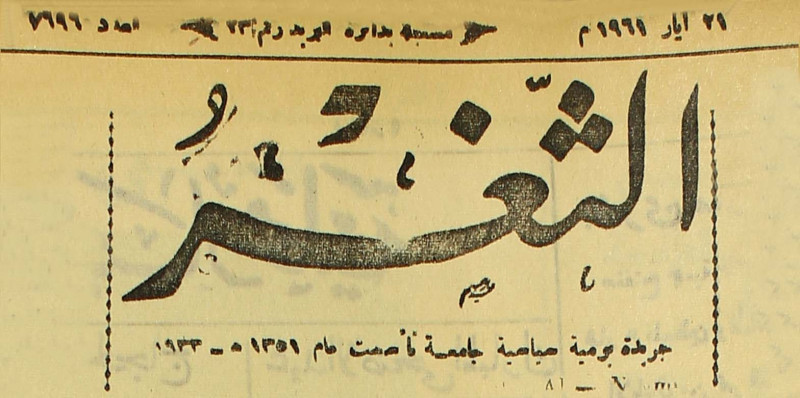 ٢١ أيار ١٩٦١ م مسجلة بدائرة البريد رقم ٢٣ العدد ٧٦٩٦
الثَّغْرُ
جريدة يومية سياسية جامعة تأسست عام ١٣٥١ هـ ــ ١٩٣٣
Al —